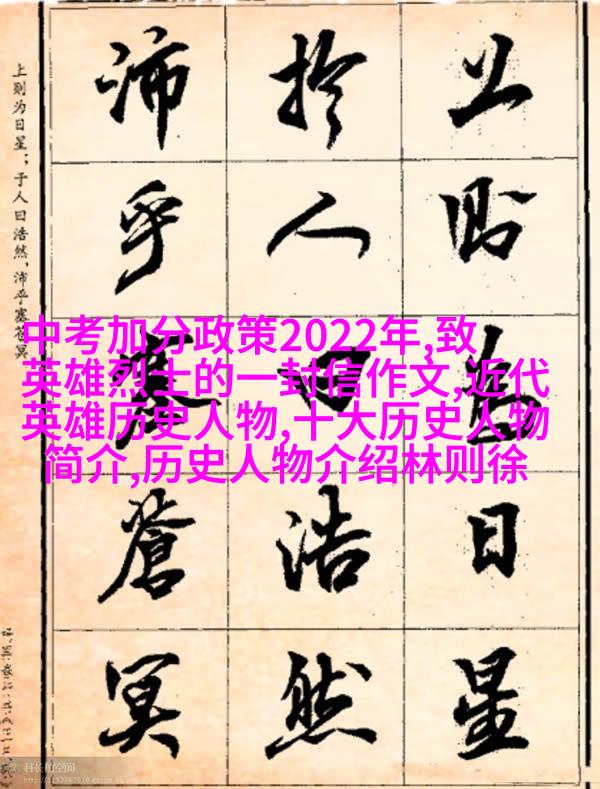 上则为日星
於人曰浩然
沛乎塞蒼冥
上则为日星；于人曰浩然，沛乎塞苍冥
中考加分政策2022年,致
英雄烈士的一封信作文,近代
英雄历史人物,十大历史人物
简介,历史人物介绍林则徐
科长的空间